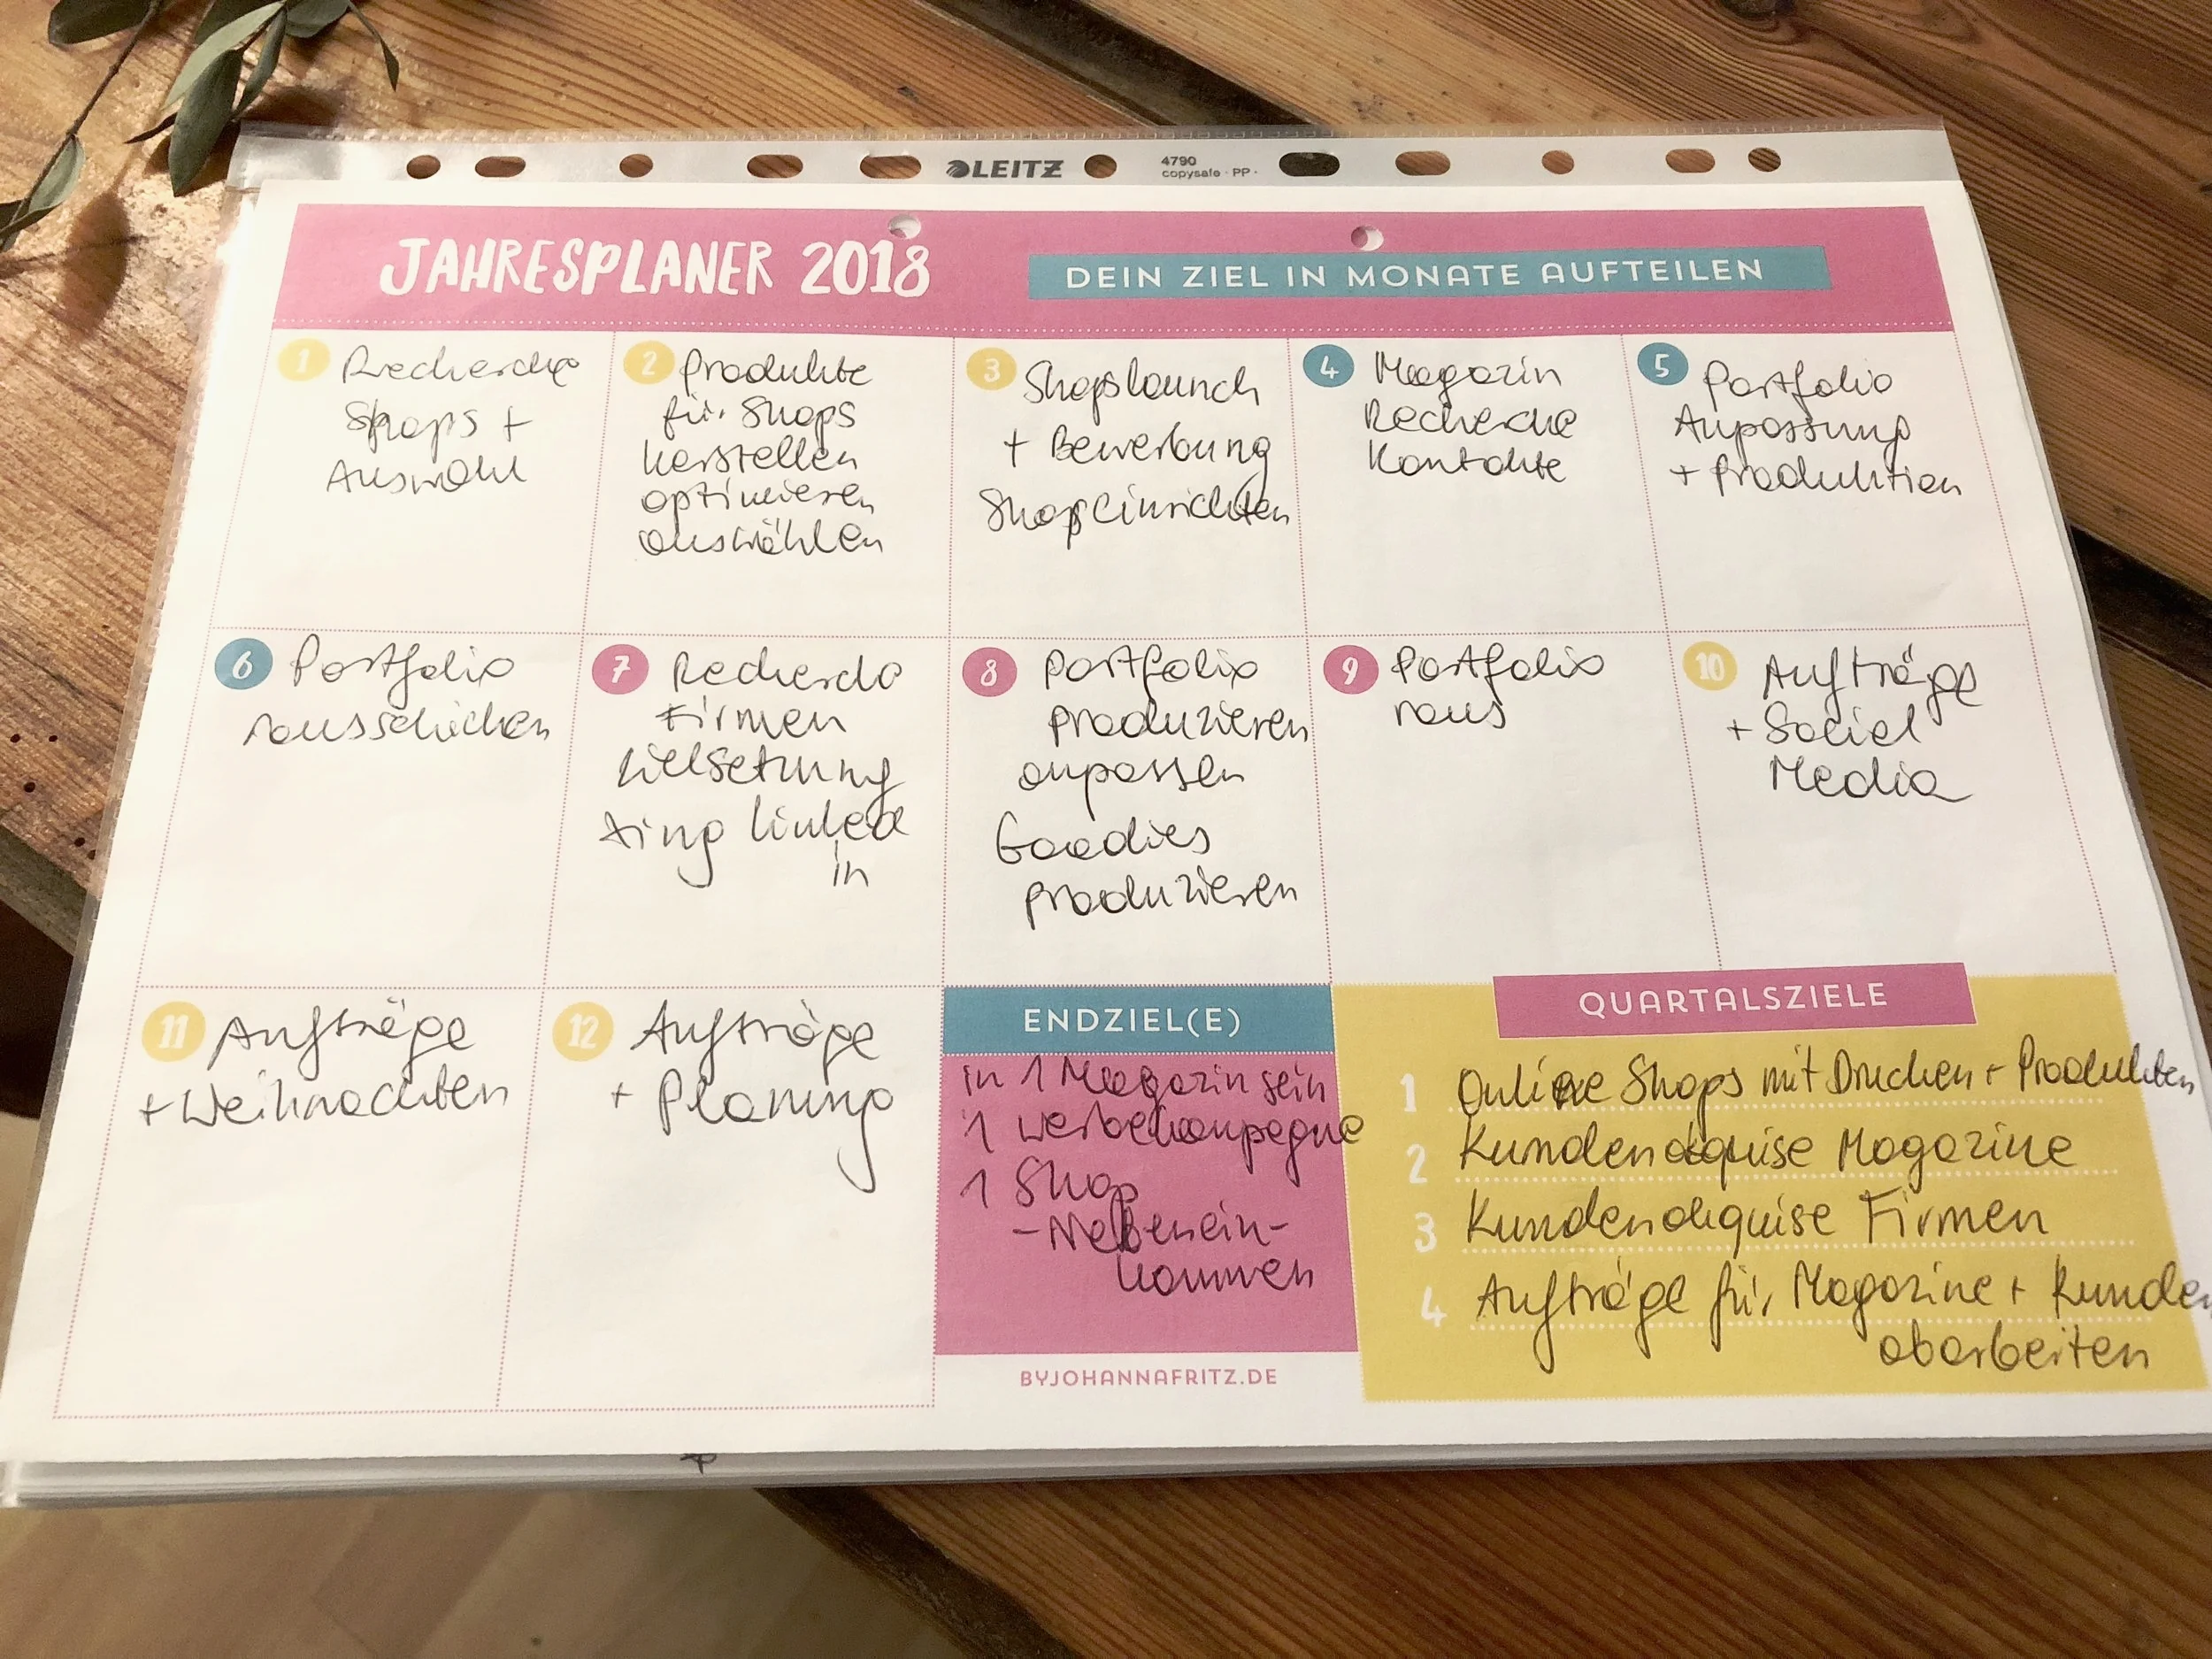 LEITZ
4790
copysafe · PP ·
JAHRESPLANER 2018
DEIN ZIEL IN MONATE AUFTEILEN
1 Recherche
Shops +
Auswahl
2 Produkte
für Shops
herstellen
optimieren
auswählen
3 Shopslaunch
+ Bewerbung
Shop einrichten
4 Magazin
Recherche
Kontakte
5 Portfolio
Anpassung
+ Produktion
6 Portfolio
rausschicken
7 Recherche
Firmen
Zielsetzung
Xing linked
in
8 Portfolio
produzieren
anpassen
Goodies
produzieren
9 Portfolio
raus
10 Aufträge
+ Social
Media
11 Aufträge
+ Weihnachten
12 Aufträge
+ Planung
ENDZIEL(E)
in 1 Magazin sein
1 Werbekampagne
1 Shop
- Nebenein-
kommen
BYJOHANNAFRITZ.DE
QUARTALSZIELE
1 Online Shops mit Drucken + Produkten
2 Kundenakquise Magazine
3 Kundenakquise Firmen
4 Aufträge für Magazine + Kunden
abarbeiten